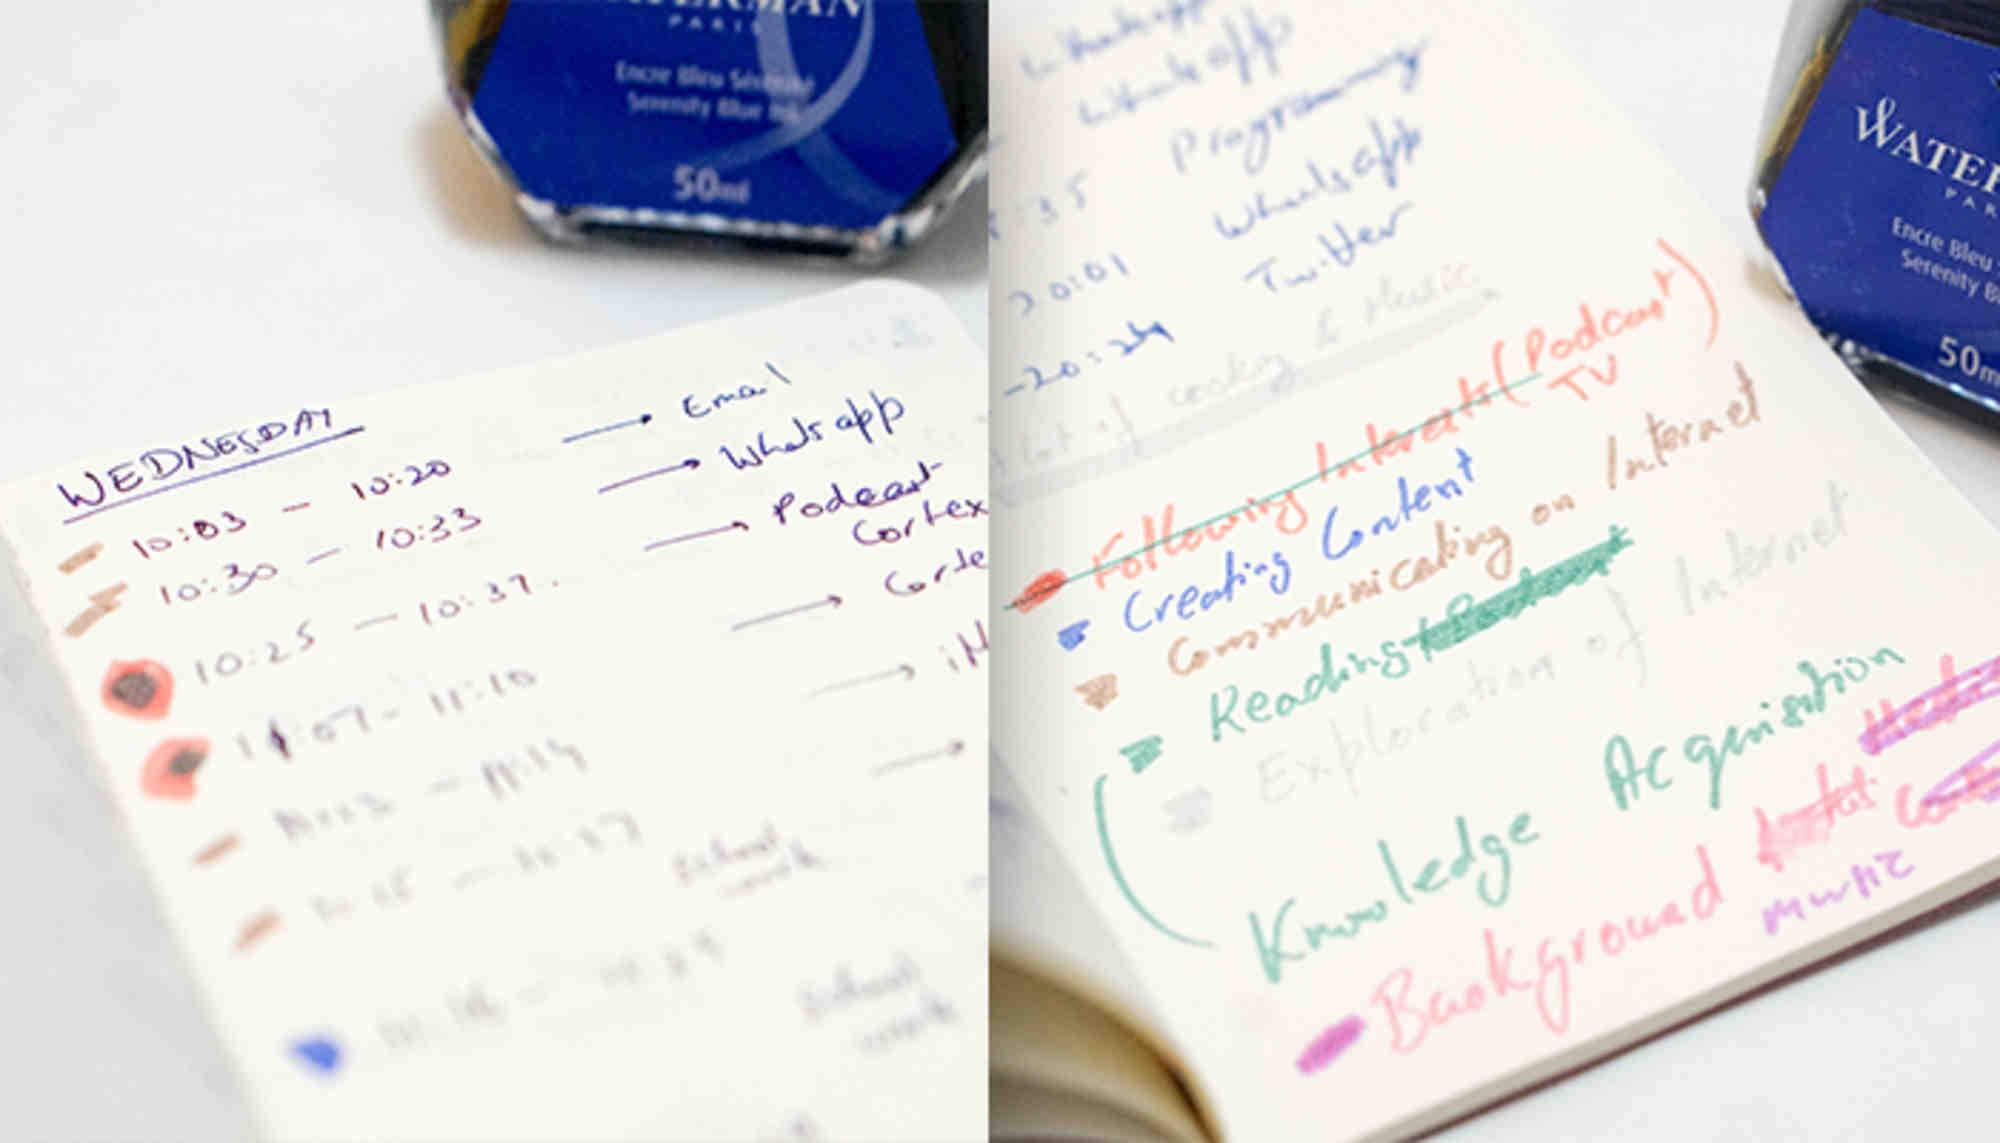 WATERMAN
PARIS
Encre Bleu Sérénité
Serenity Blue Ink
50ml
WEDNESDAY
10:03 - 10:20 → Email
10:30 - 10:33 → Whatsapp
10:25 - 10:37. → Podcast
Cortex
11:07 - 11:10 →
→
school
work
school
work
Whatsapp
Whatsapp
Programming
:35 Whatsapp
20:01 Twitter
-20:24
lot of cooking & Music
Following Interests (Podcast)
TV
Creating Content
Communicating on Internet
Reading
Exploration of Internet
Knowledge Acquisition
Background
Music
WATER
PAR
Encre Bleu
Serenity Bl
50m